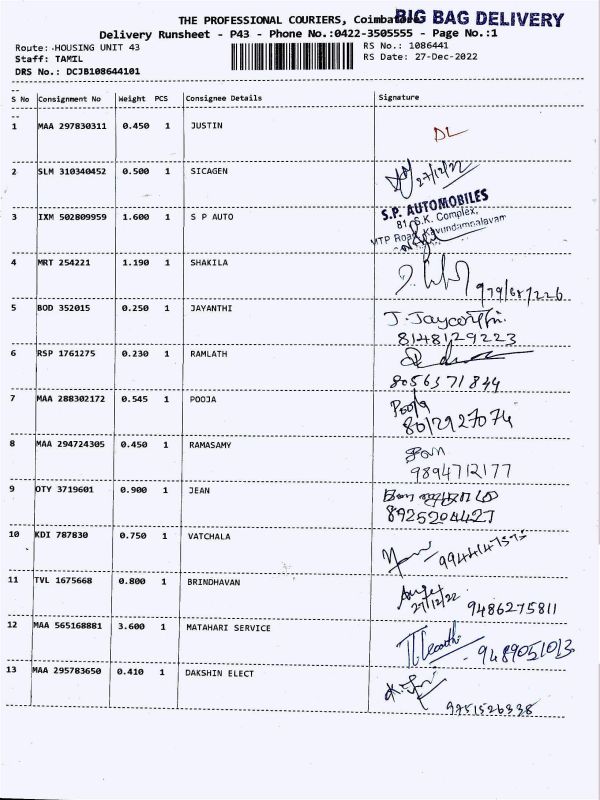 THE PROFESSIONAL COURIERS, Coimbatore
BIG BAG DELIVERY
Delivery Runsheet - P43 - Phone No.:0422-3505555 - Page No.:1
Route: HOUSING UNIT 43
RS No.: 1086441
Staff: TAMIL
RS Date: 27-Dec-2022
DRS No.: DCJB108644101
S No Consignment No Weight PCS Consignee Details Signature
1 MAA 297830311 0.450 1 JUSTIN DL
2 SLM 310340452 0.500 1 SICAGEN 27/12/22
3 IXM 502809959 1.600 1 S P AUTO
S.P. AUTOMOBILES
81, S.K. Complex,
MTP Road, Kavundampalayam
4 MRT 254221 1.190 1 SHAKILA
5 BOD 352015 0.250 1 JAYANTHI J. Jayanthi.
8148129223
6 RSP 1761275 0.230 1 RAMLATH
8056371844
7 MAA 288302172 0.545 1 POOJA Pooja
8012927074
8 MAA 294724305 0.450 1 RAMASAMY
9894712177
9 OTY 3719601 0.900 1 JEAN
8925204427
10 KDI 787830 0.750 1 VATCHALA
11 TVL 1675668 0.800 1 BRINDHAVAN
27/12/22 9486275811
12 MAA 565168881 3.600 1 MATAHARI SERVICE
9489051013
13 MAA 295783650 0.410 1 DAKSHIN ELECT
9751526338